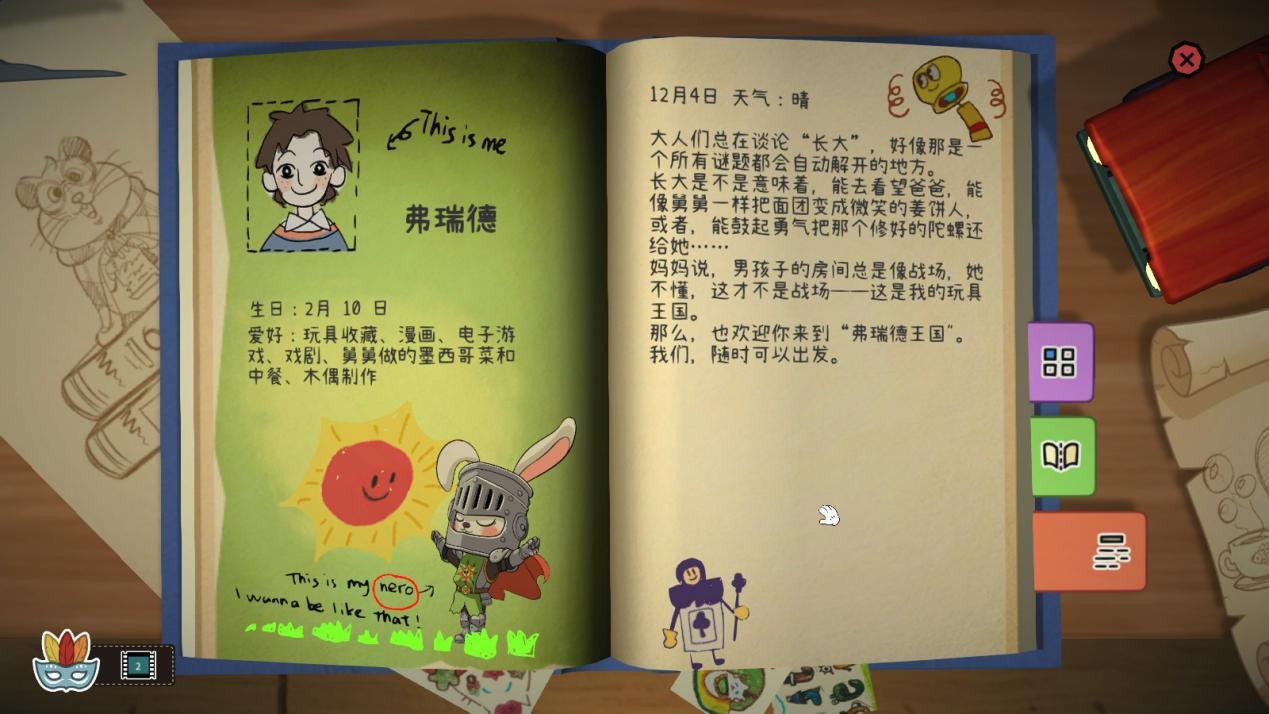 This is me
弗瑞德
生日：2月 10 日
爱好：玩具收藏、漫画、电子游
戏、戏剧、舅舅做的墨西哥菜和
中餐、木偶制作
This is my nero
I wanna be like that!
12月4日 天气：晴
大人们总在谈论“长大”，好像那是一
个所有谜题都会自动解开的地方。
长大是不是意味着，能去看望爸爸，能
像舅舅一样把面团变成微笑的姜饼人，
或者，能鼓起勇气把那个修好的陀螺还
给她……
妈妈说，男孩子的房间总是像战场，她
不懂，这才不是战场——这是我的玩具
王国。
那么，也欢迎你来到“弗瑞德王国”。
我们，随时可以出发。
2